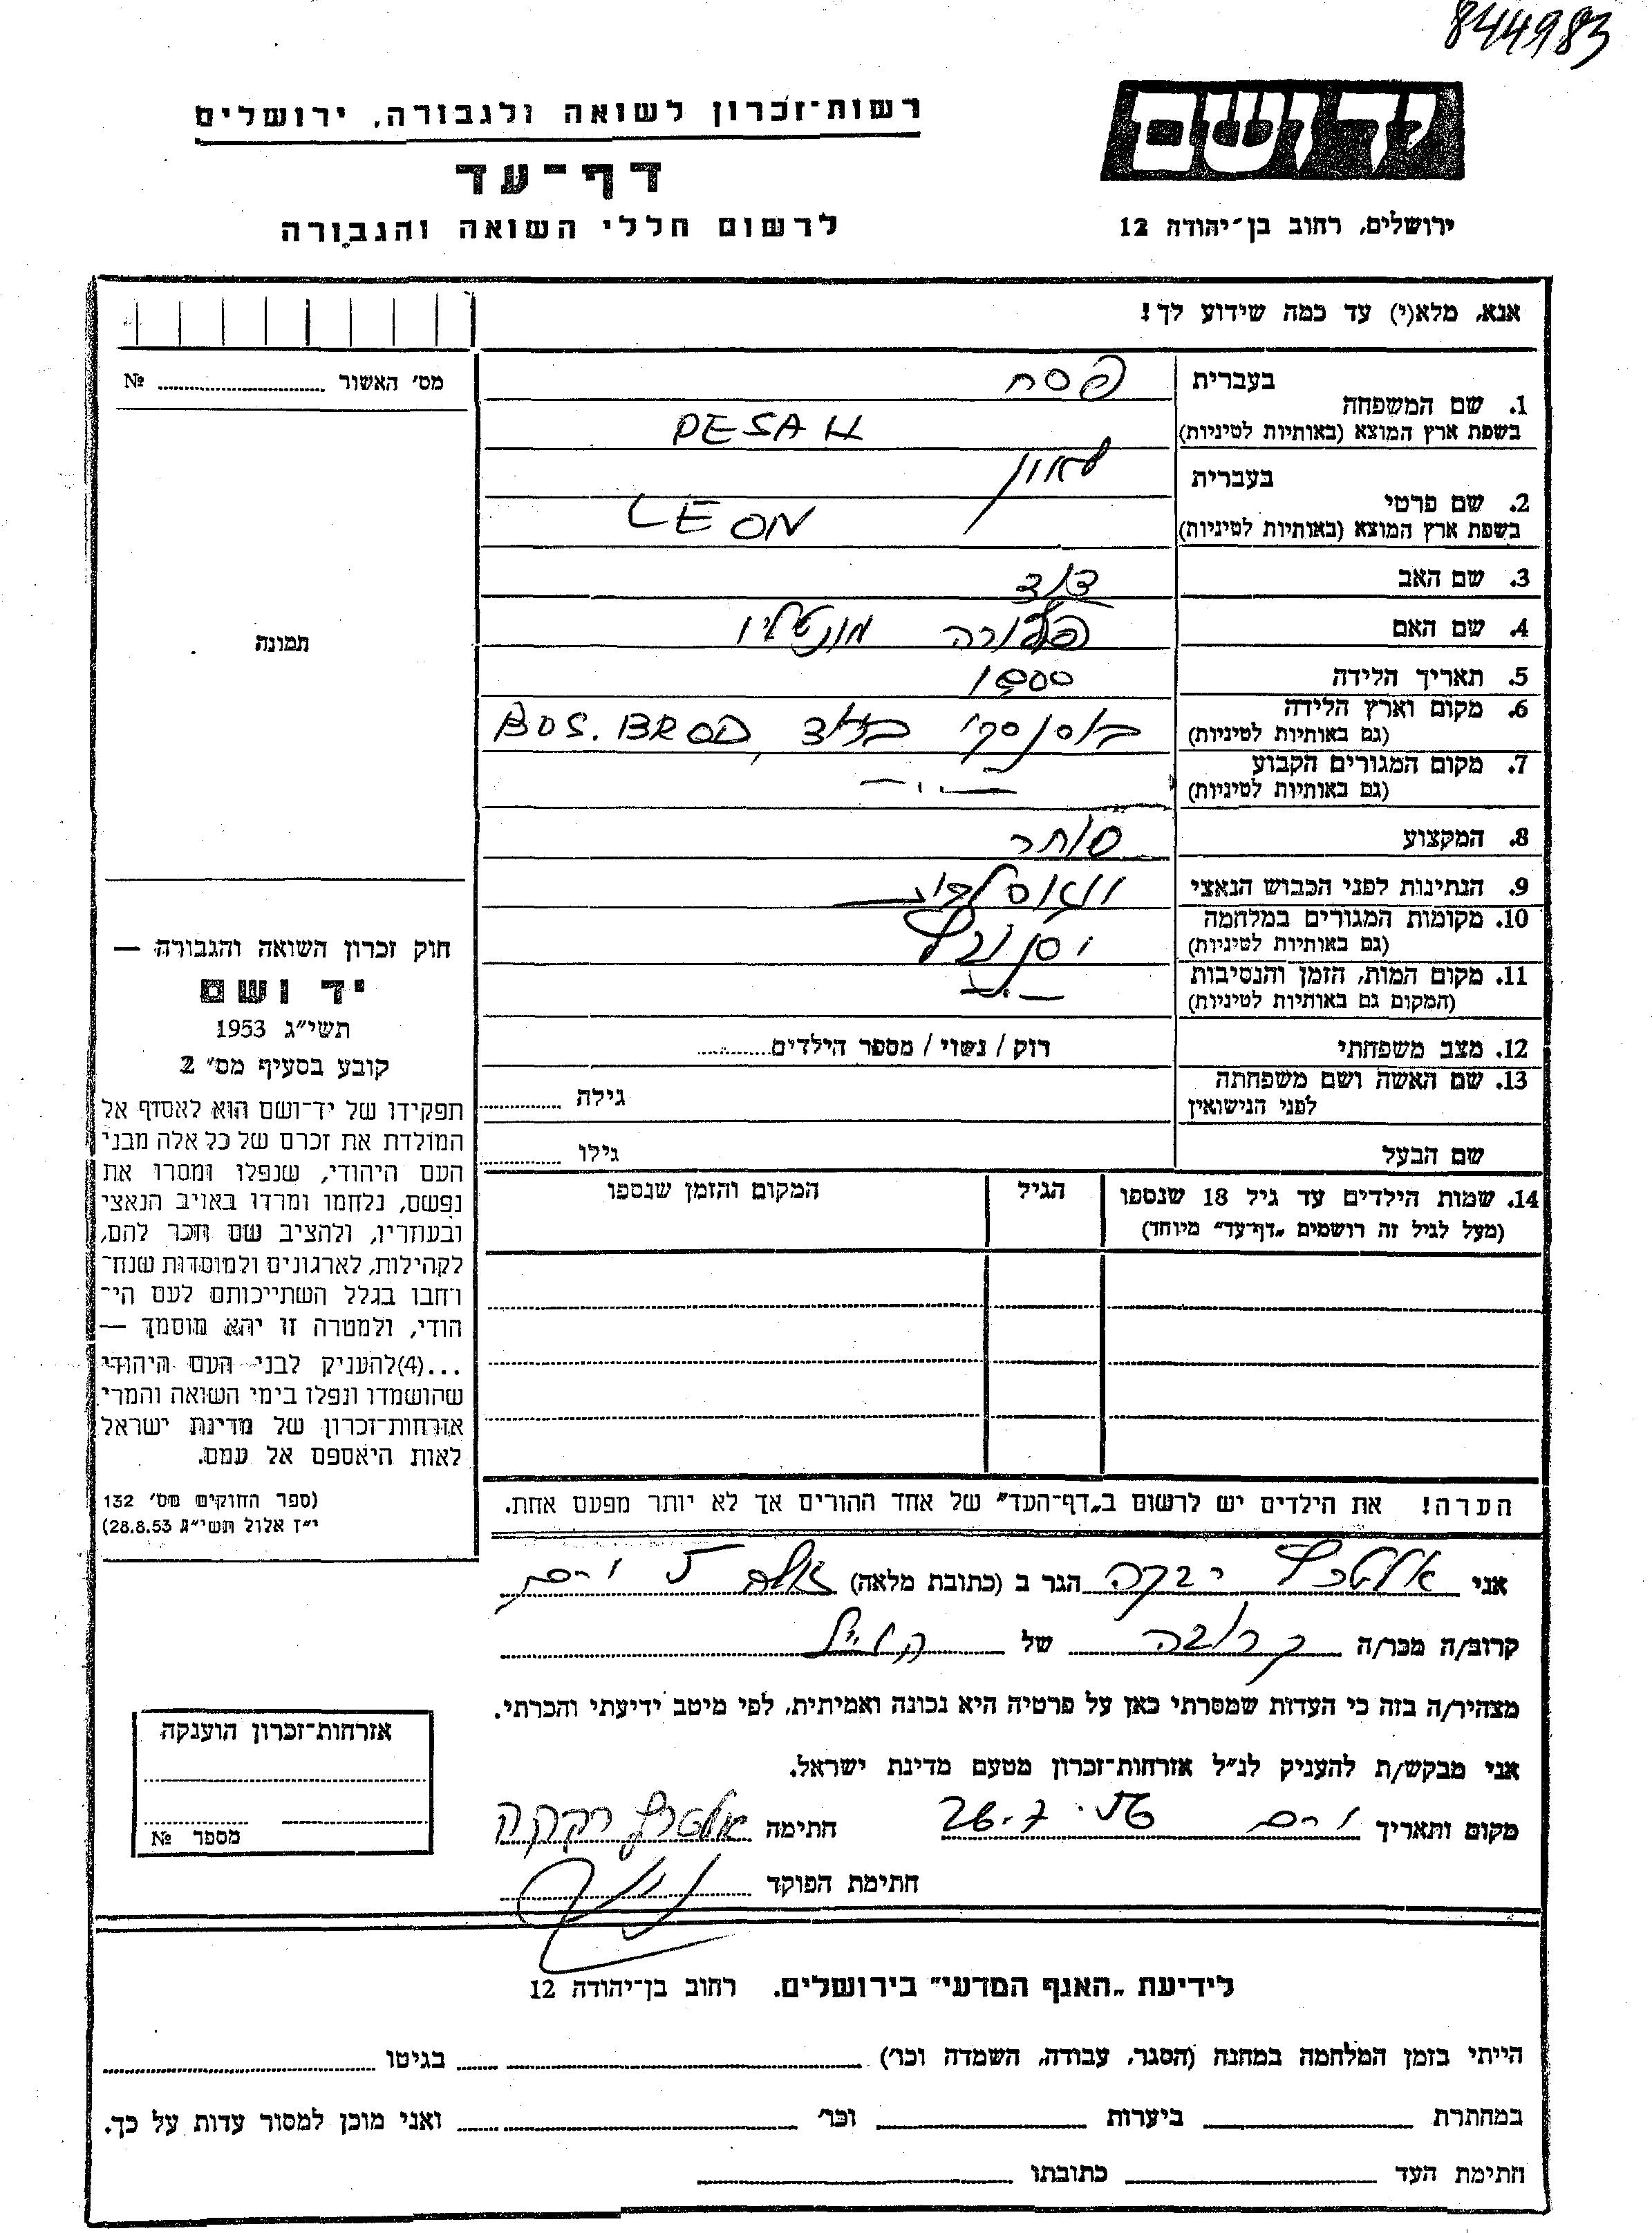 844983
רשות־זכרון לשואה ולגבורה, ירושלים
דף־עד
לרשום חללי השואה והגבורה
יד ושם
ירושלים, רחוב בן־יהודה 12
אנא, מלא(י) עד כמה שידוע לך!
מס׳ האשור № 
1. שם המשפחה בעברית פסח
בשפת ארץ המוצא (באותיות לטיניות) PESAH
2. שם פרטי בעברית לאון
בשפת ארץ המוצא (באותיות לטיניות) LEON
3. שם האב דוד
4. שם האם פלורה מונטליו
5. תאריך הלידה 1900
6. מקום וארץ הלידה בוסנסקי ברוד, BOS. BROD
(גם באותיות לטיניות)
7. מקום המגורים הקבוע — ״ —
(גם באותיות לטיניות)
8. המקצוע סוחר
9. הנתינות לפני הכבוש הנאצי
10. מקומות המגורים במלחמה
(גם באותיות לטיניות)
11. מקום המות, הזמן והנסיבות
(המקום גם באותיות לטיניות)
12. מצב משפחתי רוק / נשוי / מספר הילדים
13. שם האשה ושם משפחתה
לפני הנישואין גילה
שם הבעל גילו
14. שמות הילדים עד גיל 18 שנספו הגיל המקום והזמן שנספו
(מעל לגיל זה רושמים „דף־עד״ מיוחד)
הערה! את הילדים יש לרשום ב„דף־העד״ של אחד ההורים אך לא יותר מפעם אחת.
תמונה
חוק זכרון השואה והגבורה —
יד ושם
תשי״ג 1953
קובע בסעיף מס׳ 2
תפקידו של יד־ושם הוא לאסוף אל
המולדת את זכרם של כל אלה מבני
העם היהודי, שנפלו ומסרו את
נפשם, נלחמו ומרדו באויב הנאצי
ובעוזריו, ולהציב שם וזכר להם,
לקהילות, לארגונים ולמוסדות שנח־
רבו בגלל השתייכותם לעם הי־
הודי, ולמטרה זו יהא מוסמך —
...(4)להעניק לבני העם היהודי
שהושמדו ונפלו בימי השואה והמרי
אזרחות־זכרון של מדינת ישראל
לאות היאספם אל עמם.
(ספר החוקים מס׳ 132
י״ז אלול תשי״ג 28.8.53)
אני אלטרץ רבקה הגר ב (כתובת מלאה)
קרוב/ה מכר/ה קרובה של הנ״ל
מצהיר/ה בזה כי העדות שמסרתי כאן על פרטיה היא נכונה ואמיתית, לפי מיטב ידיעתי והכרתי.
אני מבקש/ת להעניק לנ״ל אזרחות־זכרון מטעם מדינת ישראל.
מקום ותאריך 26.7 חתימה אלטרץ רבקה
חתימת הפוקד
אזרחות־זכרון הוענקה
מספר №
לידיעת „האגף המדעי״ בירושלים. רחוב בן־יהודה 12
הייתי בזמן המלחמה במחנה (הסגר, עבודה, השמדה וכר׳) בגיטו
במחתרת ביערות וכר׳ ואני מוכן למסור עדות על כך.
חתימת העד כתובתו